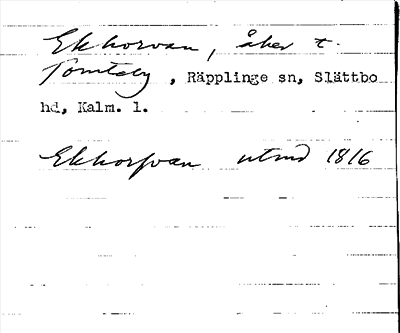 Ekhorvan, åker t.
Tomteby, Räpplinge sn, Slättbo
hd, Kalm. l.
Ekhorfvan utmd 1816